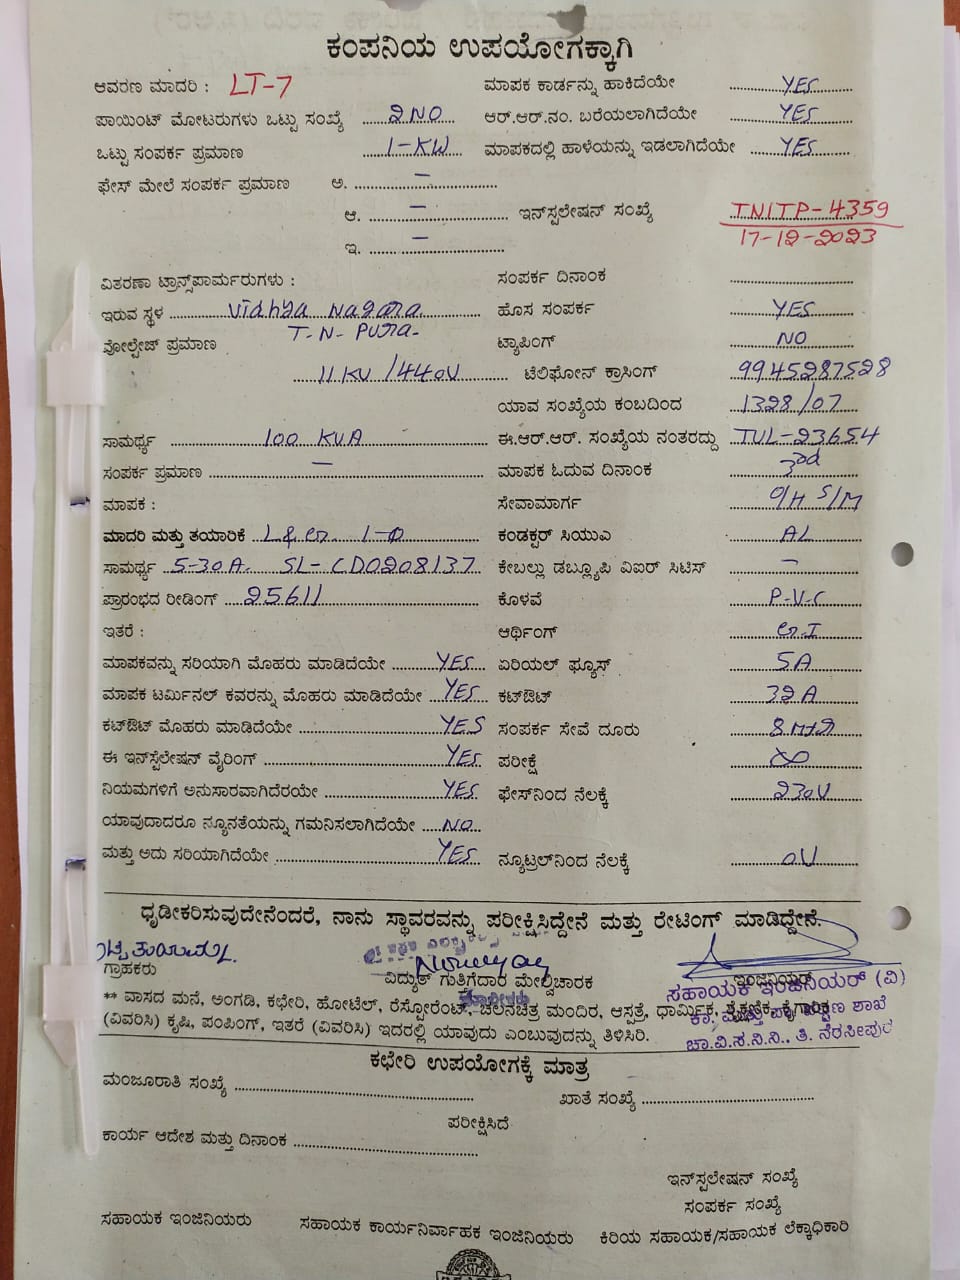 ಕಂಪನಿಯ ಉಪಯೋಗಕ್ಕಾಗಿ
ಆವರಣ ಮಾದರಿ : LT-7 ಮಾಪಕ ಕಾರ್ಡನ್ನು ಹಾಕಿದೆಯೇ YES
ಪಾಯಿಂಟ್ ಮೋಟರುಗಳು ಒಟ್ಟು ಸಂಖ್ಯೆ 2NO ಆರ್.ಆರ್.ನಂ. ಬರೆಯಲಾಗಿದೆಯೇ YES
ಒಟ್ಟು ಸಂಪರ್ಕ ಪ್ರಮಾಣ 1-KW ಮಾಪಕದಲ್ಲಿ ಹಾಳೆಯನ್ನು ಇಡಲಾಗಿದೆಯೇ YES
ಫೇಸ್ ಮೇಲೆ ಸಂಪರ್ಕ ಪ್ರಮಾಣ ಅ. –
ಆ. – ಇನ್‌ಸ್ಟಲೇಷನ್ ಸಂಖ್ಯೆ TNITP-4359
ಇ. – 17-12-2023
ವಿತರಣಾ ಟ್ರಾನ್ಸ್‌ಪಾರ್ಮರುಗಳು : ಸಂಪರ್ಕ ದಿನಾಂಕ
ಇರುವ ಸ್ಥಳ Vidhya Nagara ಹೊಸ ಸಂಪರ್ಕ YES
T-N-Pura-
ವೋಲ್ಟೇಜ್ ಪ್ರಮಾಣ ಟ್ಯಾಪಿಂಗ್ NO
11 KV /440V ಟೆಲಿಫೋನ್ ಕ್ರಾಸಿಂಗ್ 9945287528
ಯಾವ ಸಂಖ್ಯೆಯ ಕಂಬದಿಂದ 1328/07
ಸಾಮರ್ಥ್ಯ 100 KVA ಈ.ಆರ್.ಆರ್. ಸಂಖ್ಯೆಯ ನಂತರದ್ದು TUL-23654
ಸಂಪರ್ಕ ಪ್ರಮಾಣ – ಮಾಪಕ ಓದುವ ದಿನಾಂಕ 3rd
ಮಾಪಕ : ಸೇವಾಮಾರ್ಗ O/H S/M
ಮಾದರಿ ಮತ್ತು ತಯಾರಿಕೆ L&G. 1-Φ ಕಂಡಕ್ಟರ್ ಸಿಯುಎ AL
ಸಾಮರ್ಥ್ಯ 5-30A. SL-CD0208137 ಕೇಬಲ್ಲು ಡಬ್ಲ್ಯೂಪಿ ವಿಐರ್ ಸಿಟಿಸ್ –
ಪ್ರಾರಂಭದ ರೀಡಿಂಗ್ 25611 ಕೊಳವೆ P-V-C
ಇತರೆ : ಆರ್ಥಿಂಗ್ G.I
ಮಾಪಕವನ್ನು ಸರಿಯಾಗಿ ಮೊಹರು ಮಾಡಿದೆಯೇ YES ಏರಿಯಲ್ ಫ್ಯೂಸ್ 5A
ಮಾಪಕ ಟರ್ಮಿನಲ್ ಕವರನ್ನು ಮೊಹರು ಮಾಡಿದೆಯೇ YES ಕಟ್‌ಔಟ್ 32A
ಕಟ್‌ಔಟ್ ಮೊಹರು ಮಾಡಿದೆಯೇ YES ಸಂಪರ್ಕ ಸೇವೆ ದೂರು 8 mtr
ಈ ಇನ್‌ಸ್ಟೆಲೇಷನ್ ವೈರಿಂಗ್ YES ಪರೀಕ್ಷೆ ∞
ನಿಯಮಗಳಿಗೆ ಅನುಸಾರವಾಗಿದೆರಯೇ YES ಫೇಸ್‌ನಿಂದ ನೆಲಕ್ಕೆ 230V
ಯಾವುದಾದರೂ ನ್ಯೂನತೆಯನ್ನು ಗಮನಿಸಲಾಗಿದೆಯೇ NO
ಮತ್ತು ಅದು ಸರಿಯಾಗಿದೆಯೇ YES ನ್ಯೂಟ್ರಲ್‌ನಿಂದ ನೆಲಕ್ಕೆ 0V
ಧೃಡೀಕರಿಸುವುದೇನೆಂದರೆ, ನಾನು ಸ್ಥಾವರವನ್ನು ಪರೀಕ್ಷಿಸಿದ್ದೇನೆ ಮತ್ತು ರೇಟಿಂಗ್ ಮಾಡಿದ್ದೇನೆ.
ಗ್ರಾಹಕರು ವಿದ್ಯುತ್ ಗುತ್ತಿಗೆದಾರ ಮೇಲ್ವಿಚಾರಕ ಇಂಜಿನಿಯರ್
ಸಹಾಯಕ ಇಂಜಿನಿಯರ್ (ವಿ)
** ವಾಸದ ಮನೆ, ಅಂಗಡಿ, ಕಛೇರಿ, ಹೋಟೆಲ್, ರೆಸ್ಟೋರೆಂಟ್, ಚಲನಚಿತ್ರ ಮಂದಿರ, ಆಸ್ಪತ್ರೆ, ಧಾರ್ಮಿಕ, ಶೈಕ್ಷಣಿಕ, ಕೈಗಾರಿಕ
(ವಿವರಿಸಿ) ಕೃಷಿ, ಪಂಪಿಂಗ್, ಇತರೆ (ವಿವರಿಸಿ) ಇದರಲ್ಲಿ ಯಾವುದು ಎಂಬುವುದನ್ನು ತಿಳಿಸಿರಿ.
ಚಾ.ವಿ.ಸ.ನಿ.ನಿ., ತಿ. ನರಸೀಪುರ
ಕಛೇರಿ ಉಪಯೋಗಕ್ಕೆ ಮಾತ್ರ
ಮಂಜೂರಾತಿ ಸಂಖ್ಯೆ ಖಾತೆ ಸಂಖ್ಯೆ
ಪರೀಕ್ಷಿಸಿದೆ
ಕಾರ್ಯ ಆದೇಶ ಮತ್ತು ದಿನಾಂಕ
ಇನ್‌ಸ್ಟಲೇಷನ್ ಸಂಖ್ಯೆ
ಸಂಪರ್ಕ ಸಂಖ್ಯೆ
ಸಹಾಯಕ ಇಂಜಿನಿಯರು ಸಹಾಯಕ ಕಾರ್ಯನಿರ್ವಾಹಕ ಇಂಜಿನಿಯರು ಕಿರಿಯ ಸಹಾಯಕ/ಸಹಾಯಕ ಲೆಕ್ಕಾಧಿಕಾರಿ